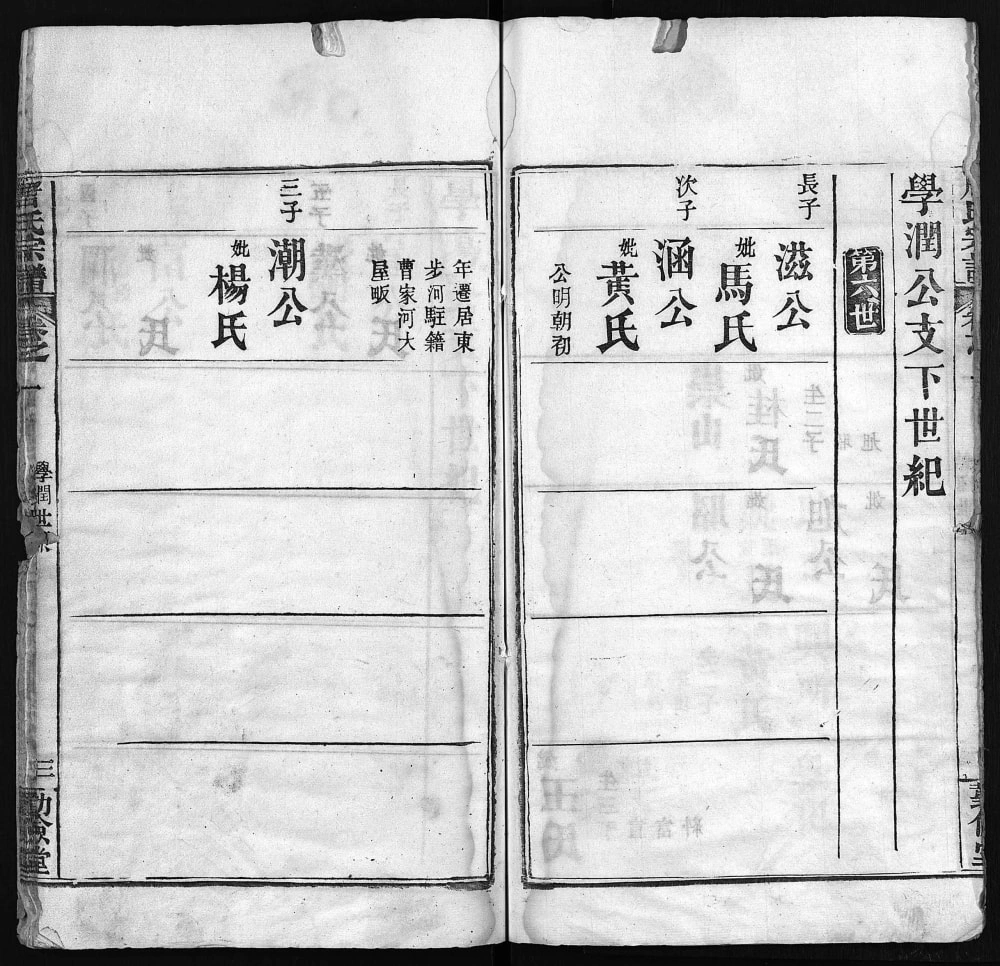 學潤公支下世紀
第六世
長子
滋公
妣馬氏
次子
涵公
妣黃氏
公明朝初
年遷居東
步河駐籍
曹家河大
屋畈
三子
潮公
妣楊氏
氏宗譜
卷之一
學潤世系
三
勤儉堂